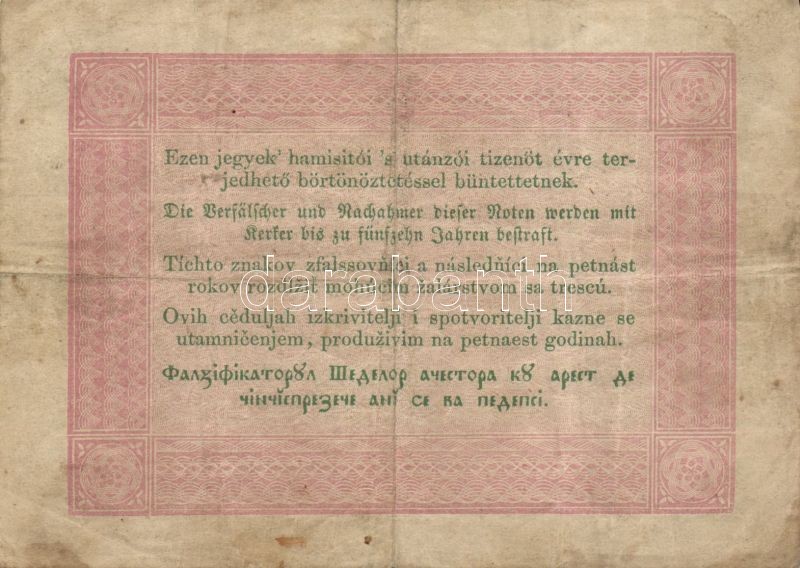 Ezen jegyek' hamisitói 's utánzói tizenöt évre ter-
jedhető börtönöztetéssel büntettetnek.
Die Verfälscher und Nachahmer dieser Noten werden mit
Kerker bis zu fünfzehn Jahren bestraft.
Tíchto znakov zfalssovňíci a následňíci na petnást
rokov rozďlžit mohúcim žalárstvom sa trescú.
Ovih cěduljah izkrivitelji i spotvoritelji kazne se
utamničenjem, produživim na petnaest godinah.
Фалꙋіфікаторꙋл Шеделор ачестора кꙋ арест де
чінчіспрезече анĭ се ва педепсі.
darabanth